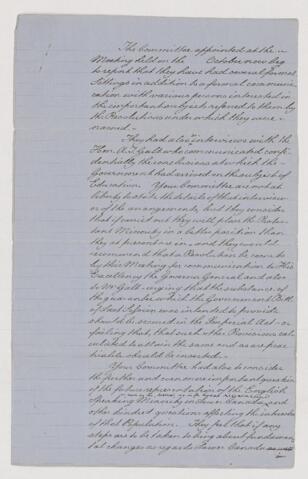 The Committee appointed at the
Meeting held on the October now beg
to report that they have had several formal
Sittings in addition to informal communi-
cation with various persons interested in
the important subject referred to them by
the Resolutions under which they were
named.
They had also interviews with the
Hon. A. T. Galt who communicated confi-
dentially the conclusions at which the
Government had arrived on the subject of
Education. Your Committee are not at
liberty to state the details of that interview
or of the arrangements, but they consider
that if carried out they will place the Protes-
tant Minority in a better position than
they at present are in, and they would
recommend that a Resolution be come to
by this Meeting for communication to His
Excellency the Governor General and also
to Mr Galt urging that the substance of
the guarantee which the Government Bill
of last Session was intended to provide
should be secured in the Imperial Act - or
failing that, that such other Provisions cal-
culated to attain the same end as are prac-
ticable should be inserted.
Your Committee had also to consider
the further and even more important question
of the future representation of the English
Speaking Minority in Lower Canada, and
other kindred questions affecting the interests
of that Population. They feel that if any
steps are to be taken to bring about fundamen-
tal changes as regards Lower Canada